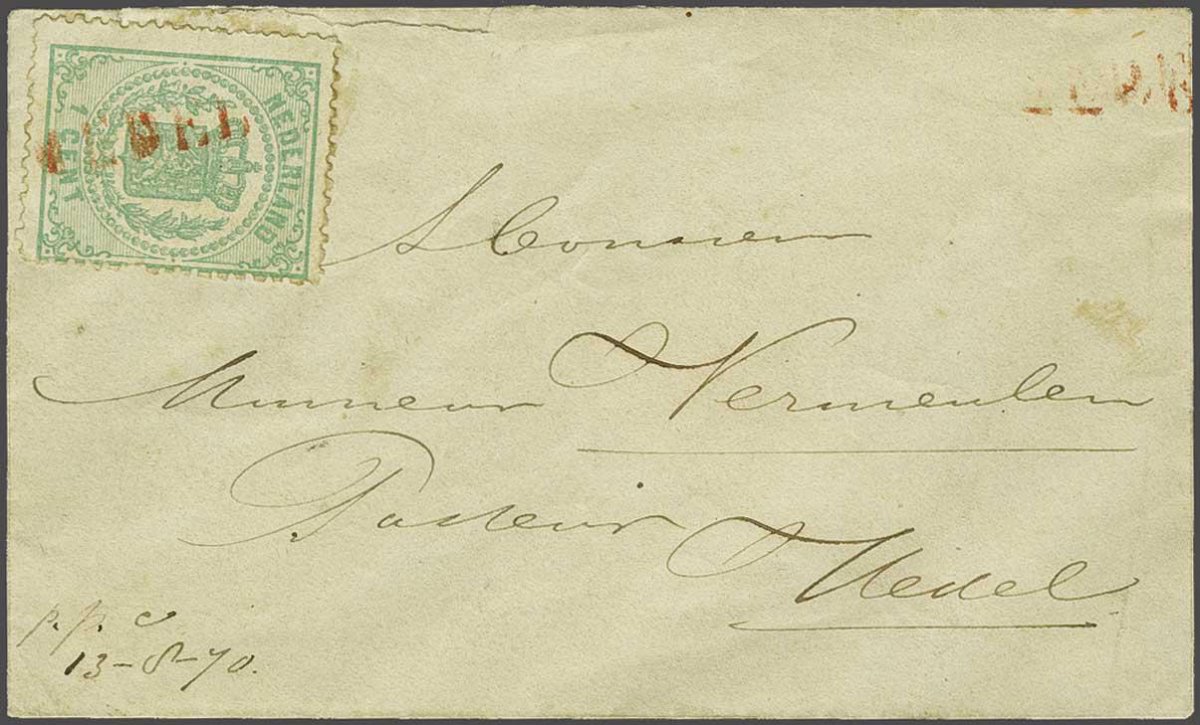 NEDERLAND
1 CENT
HEDEL
A Monsieur
Monsieur Vermeulen
Pasteur Hedel
p. p. c
13-8-70.